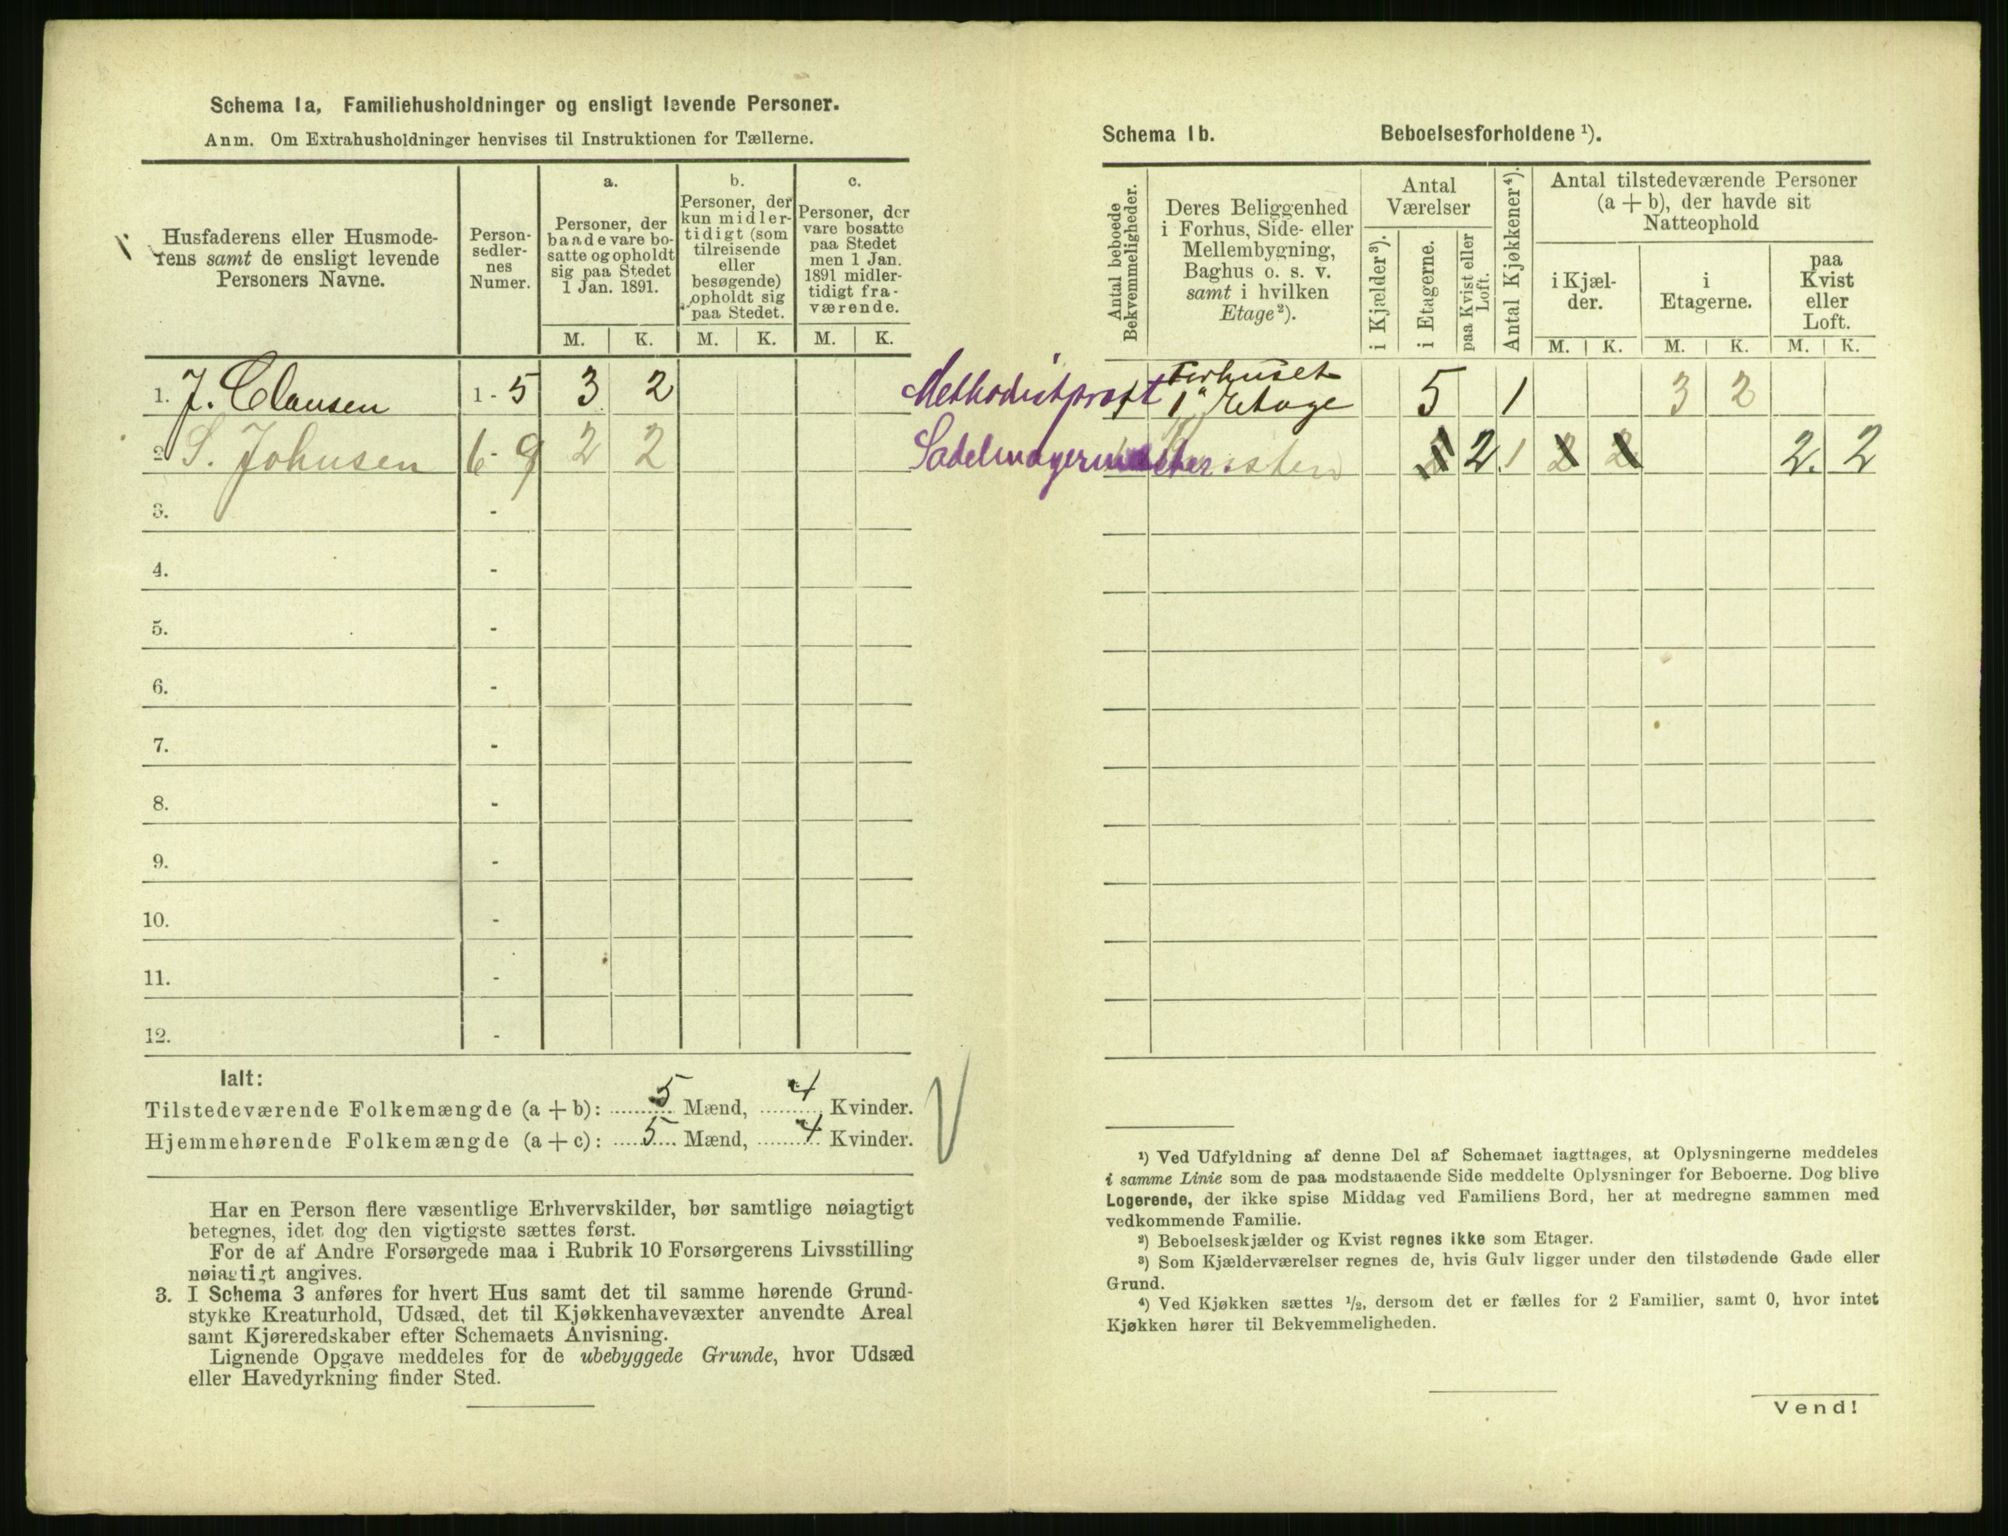 Schema 1a, Familiehusholdninger og ensligt levende Personer.
Anm. Om Extrahusholdninger henvises til Instruktionen for Tællerne.
Husfaderens eller Husmode-
rens samt de ensligt levende
Personers Navne.
Person-
sedler-
nes
Numer.
a.
Personer, der
baade vare bo-
satte og opholdt
sig paa Stedet
1 Jan. 1891.
b.
Personer, der
kun midler-
tidigt (som
tilreisende
eller
besøgende)
opholdt sig
paa Stedet.
c.
Personer, der
vare bosatte
paa Stedet
men 1 Jan.
1891 midler-
tidigt fra-
værende.
M. K. M. K. M. K.
1. J. Clausen 1 - 5 3 2
2. S. Johnsen 6 - 9 2 2
3. -
4. -
5. -
6. -
7. -
8. -
9. -
10. -
11. -
12. -
Ialt:
Tilstedeværende Folkemængde (a + b): 5 Mænd, 4 Kvinder.
Hjemmehørende Folkemængde (a + c): 5 Mænd, 4 Kvinder.
Har en Person flere væsentlige Erhvervskilder, bør samtlige nøiagtigt
betegnes, idet dog den vigtigste sættes først.
For de af Andre Forsørgede maa i Rubrik 10 Forsørgerens Livsstilling
nøiagtigt angives.
3. I Schema 3 anføres for hvert Hus samt det til samme hørende Grund-
stykke Kreaturhold, Udsæd, det til Kjøkkenhavevæxter anvendte Areal
samt Kjøreredskaber efter Schemaets Anvisning.
Lignende Opgave meddeles for de ubebyggede Grunde, hvor Udsæd
eller Havedyrkning finder Sted.
Schema 1b. Beboelsesforholdene ¹).
Antal beboede
Bekvemmeligheder.
Deres Beliggenhed
i Forhus, Side- eller
Mellembygning,
Baghus o. s. v.
samt i hvilken
Etage²).
Antal
Værelser
i Kjælder³).
i Etagerne.
paa Kvist eller
Loft.
Antal Kjøkkener⁴).
Antal tilstedeværende Personer
(a + b), der havde sit
Natteophold
i Kjæl-
der.
i
Etagerne.
paa
Kvist
eller
Loft.
M. K. M. K. M. K.
Methodistpræst 1 Forhuset
1ª Etage 5 1 3 2
Sadelmagermester. 2 2 1 2 2 2. 2
¹) Ved Udfyldning af denne Del af Schemaet iagttages, at Oplysningerne meddeles
i samme Linie som de paa modstaaende Side meddelte Oplysninger for Beboerne. Dog blive
Logerende, der ikke spise Middag ved Familiens Bord, her at medregne sammen med
vedkommende Familie.
²) Beboelseskjælder og Kvist regnes ikke som Etager.
³) Som Kjælderværelser regnes de, hvis Gulv ligger under den tilstødende Gade eller
Grund.
⁴) Ved Kjøkken sættes ½, dersom det er fælles for 2 Familier, samt 0, hvor intet
Kjøkken hører til Bekvemmeligheden.
Vend!